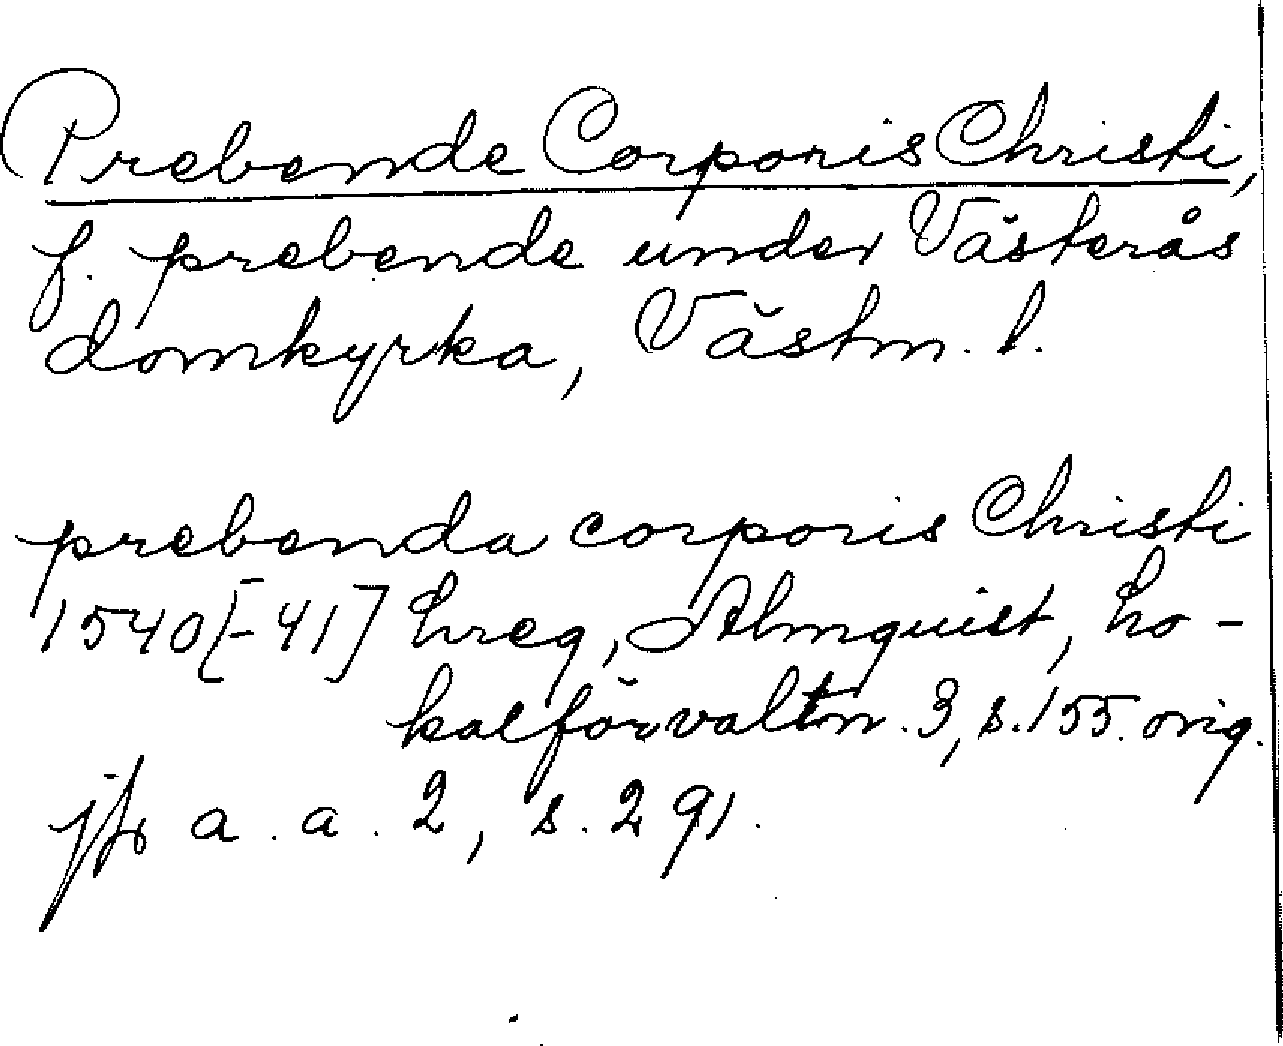 Prebende Corporis Christi,
f. prebende under Västerås
domkyrka, Västm. l.
prebenda corporis Christi
1540[-41] hreg, Almquist, Lo-
kalförvaltn. 3, s. 155. orig.
jfr a. a. 2, s. 291.